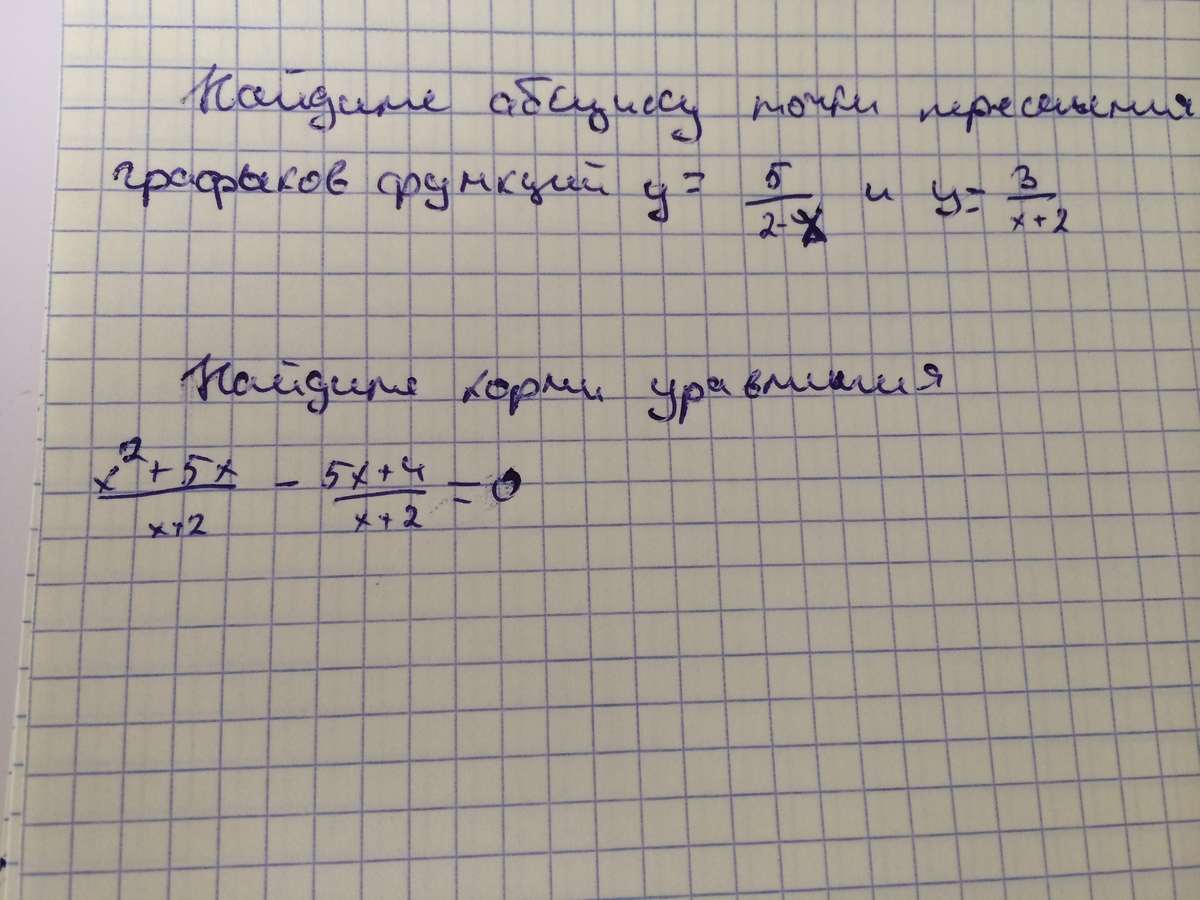 Найдите абсциссу точки пересечения
графыков функций y = 5/(2-x) и y = 3/(x+2)
Найдите корни уравнения
(x²+5x)/(x+2) - (5x+4)/(x+2) = 0